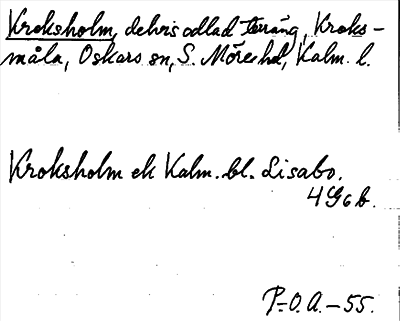 Kroksholm, delvis odlad terräng, Kroks-
måla, Oskars sn, S. Möre hd, Kalm. l.
Kroksholm ek Kalm. bl. Lisabo.
4 G 6 b.
P.-O. A. - 55.